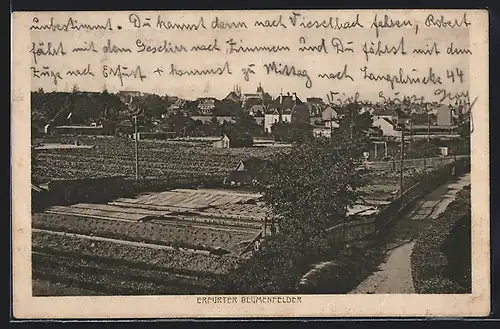 unbestimmt. Du kannst dann nach Vieselbad fahren, Robert
fährt mit dem Geschirr nach Zimmern und Du fährst mit dem
Zuge nach Erfurt + kommst zu Mittag nach Langebrücke 44
ERFURTER BLUMENFELDER